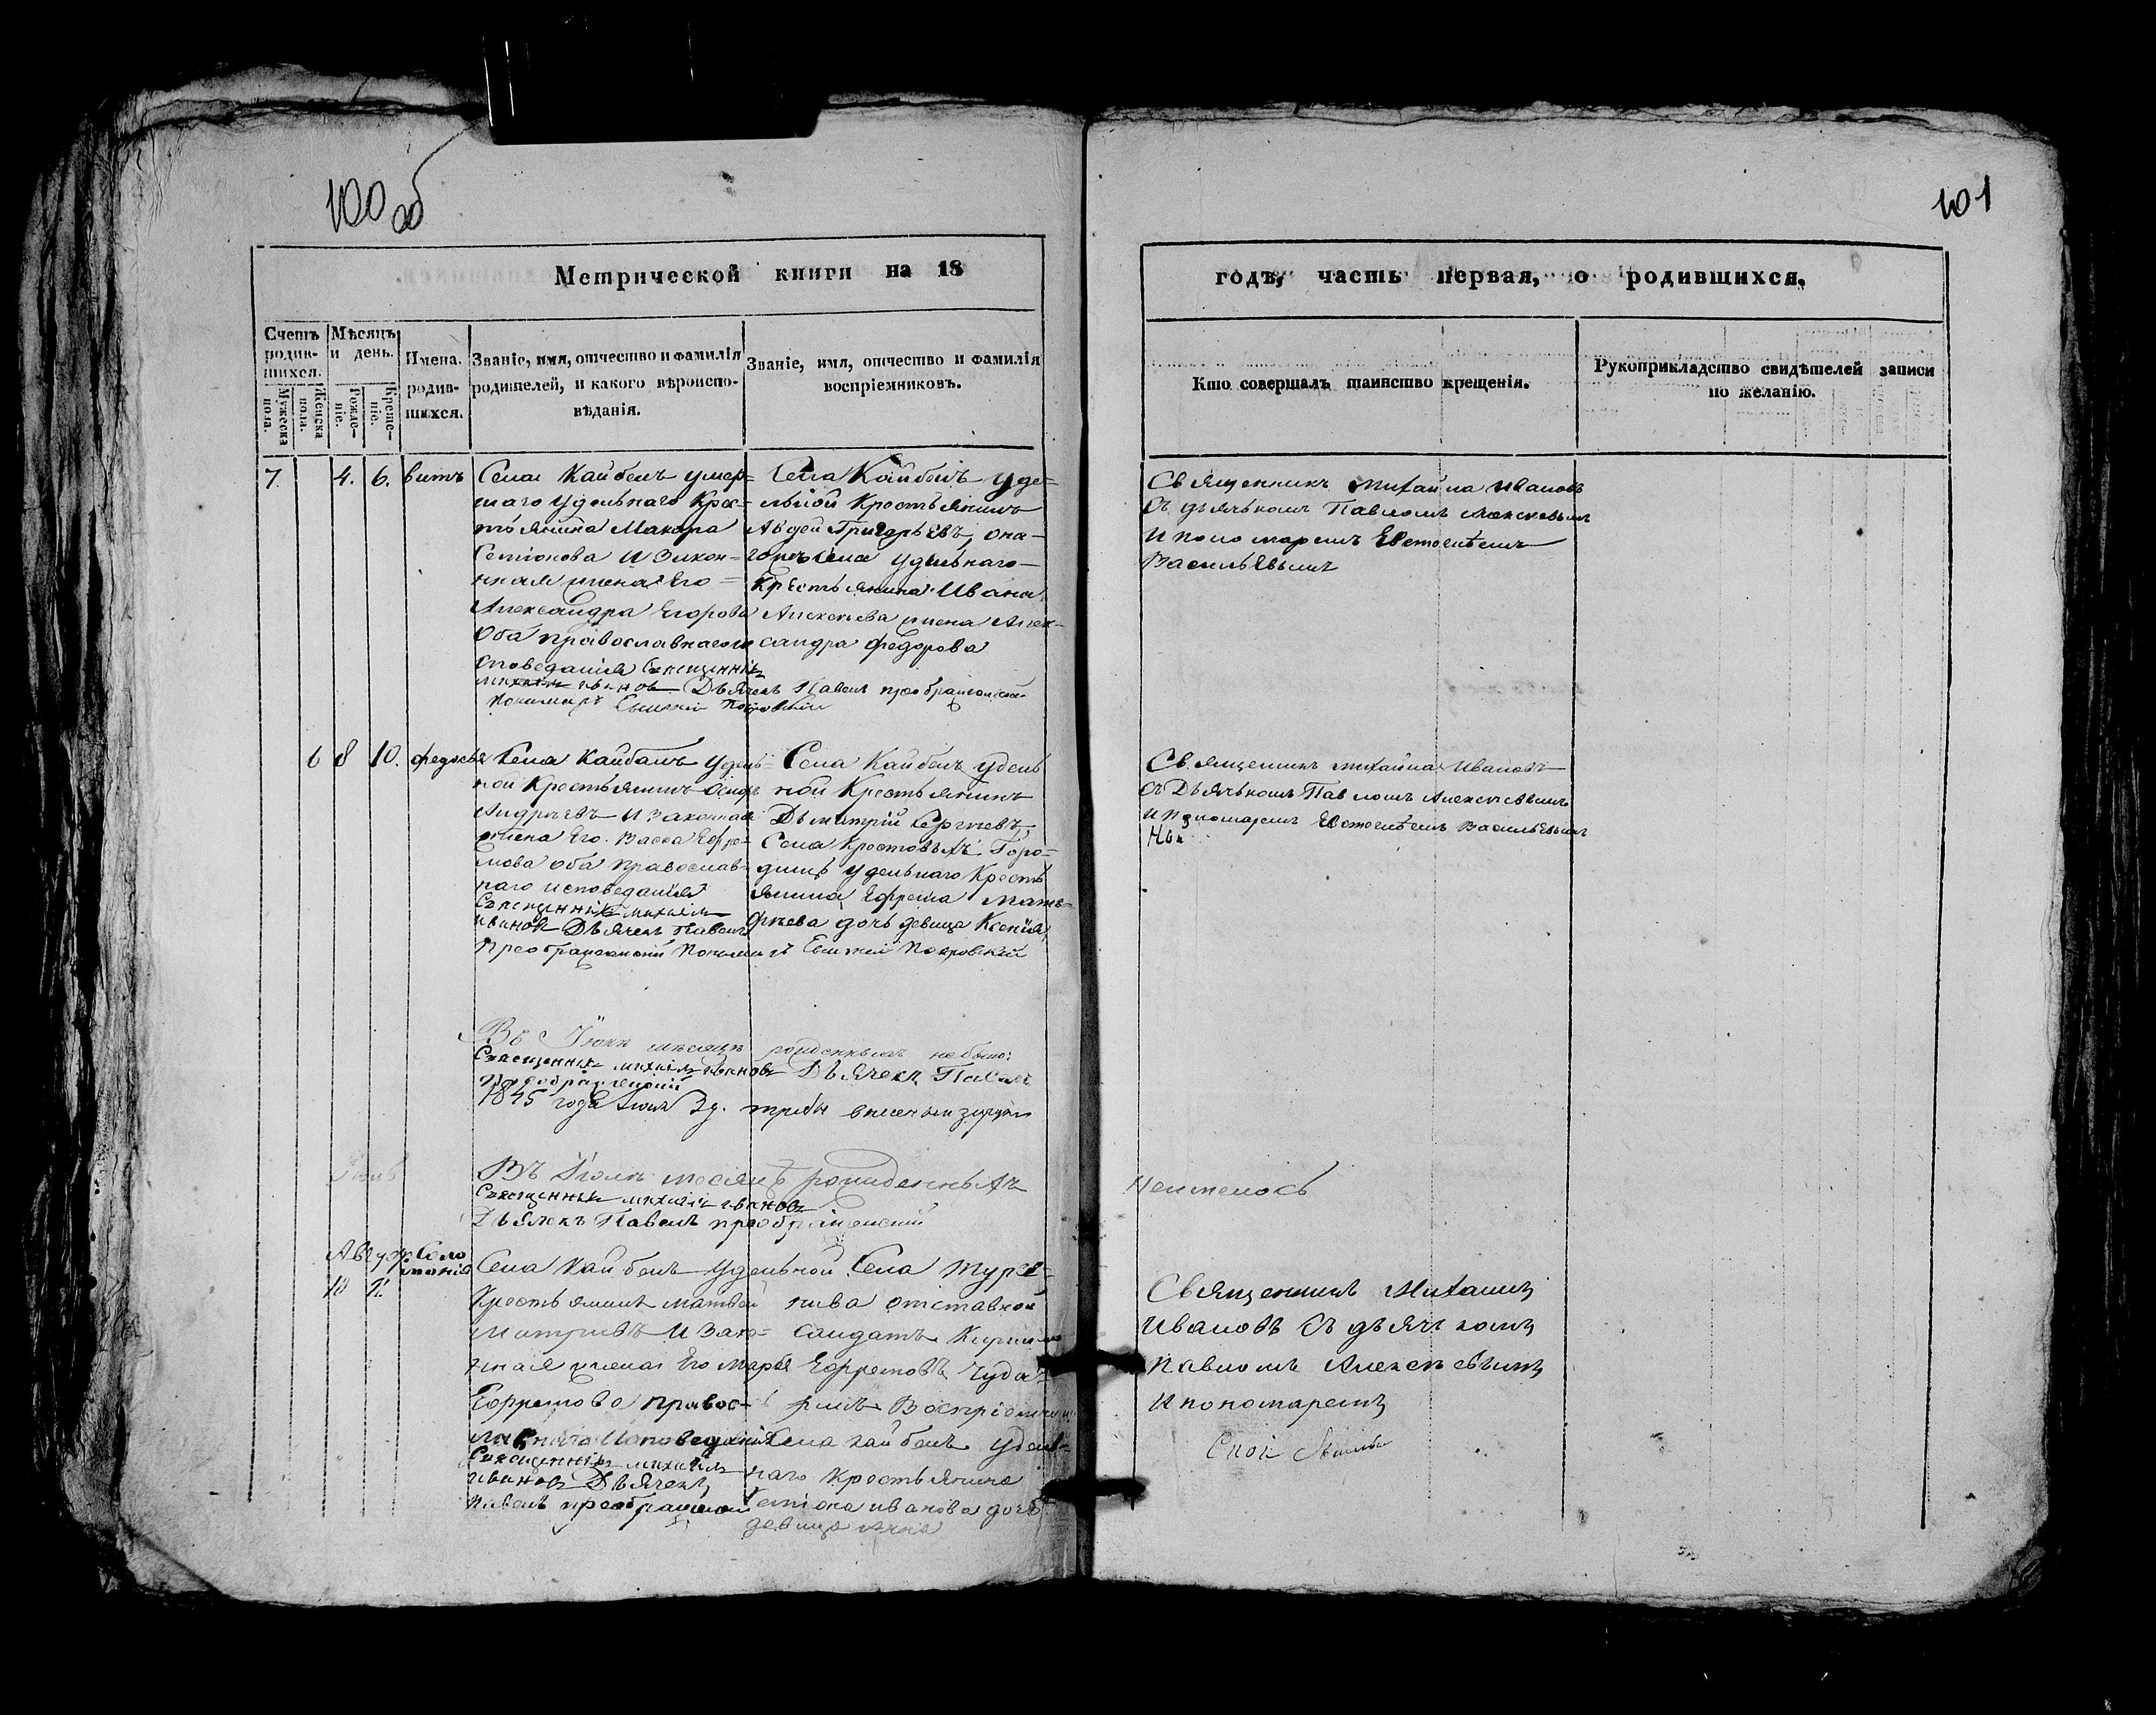 100 об
101
Метрической книги на 18
годъ, часть первая, о родившихся.
Счетъ родив-шихся.
Мужеска пола.
Женска пола.
Мѣсяцъ и день.
Рожде-ніе.
Креще-ніе.
Имена родив-шихся.
Званіе, имя, отчество и фамилія
родителей, и какого вѣроиспо-
вѣданія.
Званіе, имя, отчество и фамилія
воспріемниковъ.
Кто совершалъ таинство крещенія.
Рукоприкладство свидѣтелей записи
по желанію.
7 4. 6. витъ
Села Кайбелъ умер=
шаго удельнаго Кре=
стьянина Макара
Семіонова И Закон=
ная жена Его =
Александра Егорова
Оба православнаго и
споведания Священникъ
михаилъ ивановъ Дьячекъ Павелъ преображенский
Пономарь Евтихий Покровский
Села Кайбелъ уде=
льной Крестьянинъ
Авдей Григорьевъ, она=
гожъ села удельнаго
Крестьянина Ивана
Алексеева жена Алек=
сандра федорова
Священникъ михайла ивановъ
Съ дьячькомъ Павломъ Алексеевымъ
И пономаремъ
Васильевымъ
6 8 10. федосья
Села Кайбелъ удель=
ной Крестьянинъ Осипъ
Андреевъ И Законная
жена Его Васса Ефре=
мова Оба Православ=
наго исповедания
Священникъ михаилъ
ивановъ Дьячекъ Павелъ
Преображенский Пономарь Евтихий Покровский
Села Кайбелъ удель
ной Крестьянинъ
Дьмитрий Сергеевъ,
Села Крестовыхъ Горо=
дищъ удельнаго Кресть
янина Ефрема Мать=
феева дочь девица Ксения
Священникъ михайла Ивановъ
Съ Дьячькомъ Павломъ Алексеевымъ
И Пономаремъ Васильевымъ
Въ Июне месяце рожденныхъ не было:
Священникъ михаилъ ивановъ Дьячекъ Павелъ
преображенский
1845 года Июля 3д.
Въ Июле месяце рожденныхъ
Неимелось
Священникъ михаилъ ивановъ
Дьячекъ Павелъ преображенский
Августъ
10 12 Соломония
Села Кайбелъ Удельной
Крестьянинъ матвей
митриевъ И Закон=
ная жена Его марья
Ефремова Правос=
лавнаго Исповедания
Священникъ михаилъ
ивановъ Дьячекъ
Павелъ преображенский
Села Турге=
нива отставной
Салдатъ Кирила
Ефремовъ Чуда=
Воспріемница
Села Кайбелъ удель=
наго Крестьянина
Семиона иванова дочь
девица анна
Священникъ Михаилъ
Ивановъ Съ дьячкомъ
Павломъ Алексеевымъ
И пономаремъ